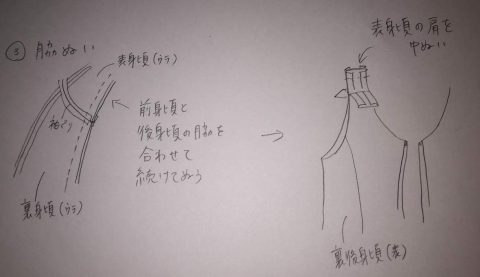 ③ 脇ぬい
表身頃(ウラ)
袖ぐり
前身頃と
後身頃の脇を
合わせて
続けてぬう
裏身頃(ウラ)
→
表身頃の肩を
中ぬい
裏後身頃(表)